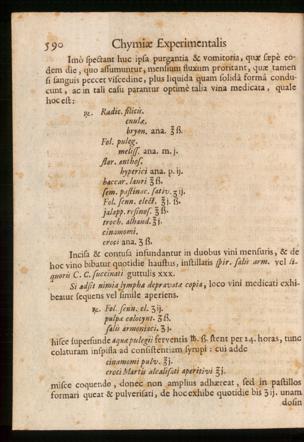 590 Chymiæ Experimentalis
Imò spectant huc ipsa purgantia & vomitoria, quæ sæpè eo-
dem die, quo assumuntur, mensium fluxum proritant, quæ tamen
si sanguis peccet viscedine, plus liquida quam solidâ formâ condu-
cunt, ac in tali casu parantur optimè talia vina medicata, quale
hoc est:
℞. Radic. filicis.
enulæ.
bryon. ana. ℥ß.
Fol. puleg.
meliss. ana. m. j.
flor. anthos.
hyperici ana. p. ij.
baccar. lauri ℥ß.
sem. pastinac. sativ. ʒij.
Fol. senn. elect. ℥j. ß.
jalapp. resinos. ℥ß.
troch. alhand. ℥j.
cinamomi.
croci ana. ʒß.
Incisa & contusa infundantur in duobus vini mensuris, & de
hoc vino bibatur quotidie haustus, instillatis spir. salis arm. vel li-
quoris C. C. succinati guttulis xxx.
Si adsit nimia lympha depravata copia, loco vini medicati exhi-
beatur sequens vel simile aperiens.
℞. Fol. senn. el. ℥ij.
pulpæ colocynt. ℥ß.
salis armoniaci. ℥j.
hisce superfunde aquæ pulegii ferventis ℔. ß. stent per 24. horas, tunc
colaturam inspissa ad consistentiam syrupi: cui adde
cinamomi pulv. ℥j.
croci Martis alcalisati aperitivi ℥j.
misce coquendo, donec non amplius adhæreat, sed in pastillos
formari queat & pulverisati, de hoc exhibe quotidie bis ʒij. unam
dosin